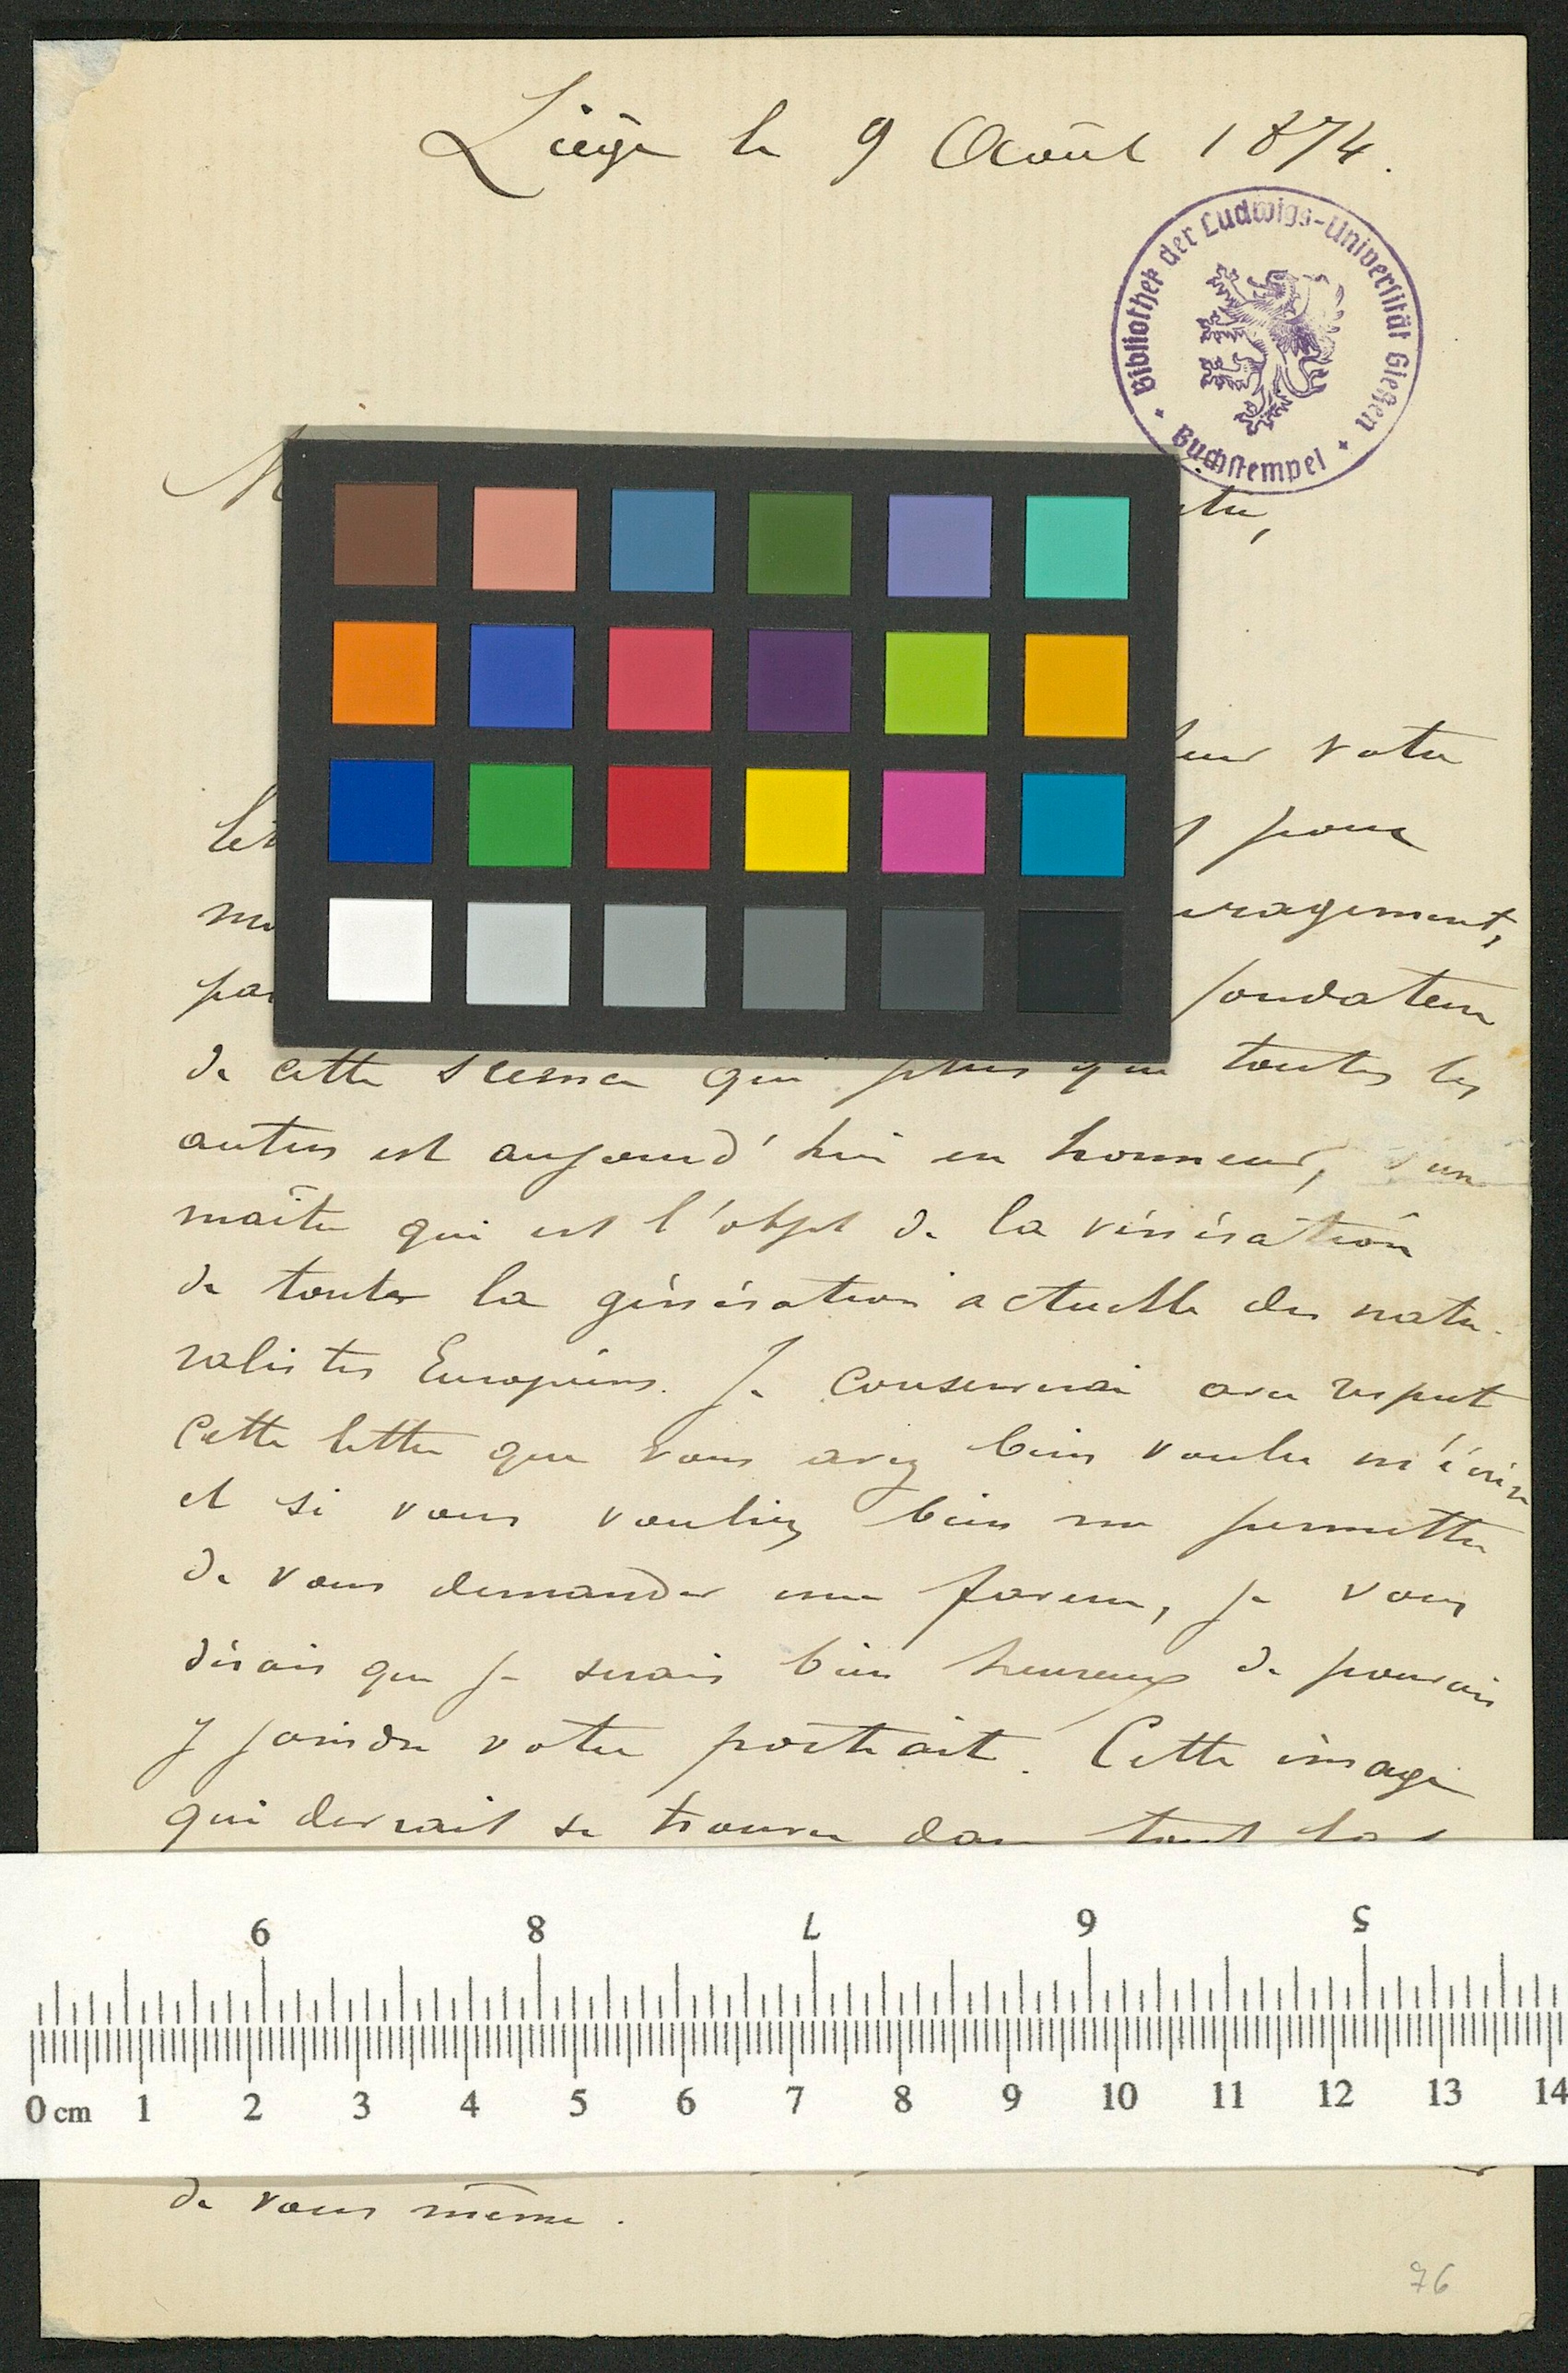 Liège le 9 Août 1874.
Bibliothek der Ludwigs-Universität Gießen
Buchstempel
votre
pour
fondateur
de cette science qui plus que toutes les
autres est aujourd'hui en honneur, d'un
maître qui est l'objet de la vénération
de toute la génération actuelle des natu-
ralistes Européens. Je conserverai avec respect
cette lettre que vous avez bien voulu m'écrire
et si vous vouliez bien me permettre
de vous demander une faveur, je vous
dirais que je serais bien heureux de pouvoir
y joindre votre portrait. Cette image
qui devrait se trouver dans
9 8 7 6 5
0 cm 1 2 3 4 5 6 7 8 9 10 11 12 13 14
de vous même.
76